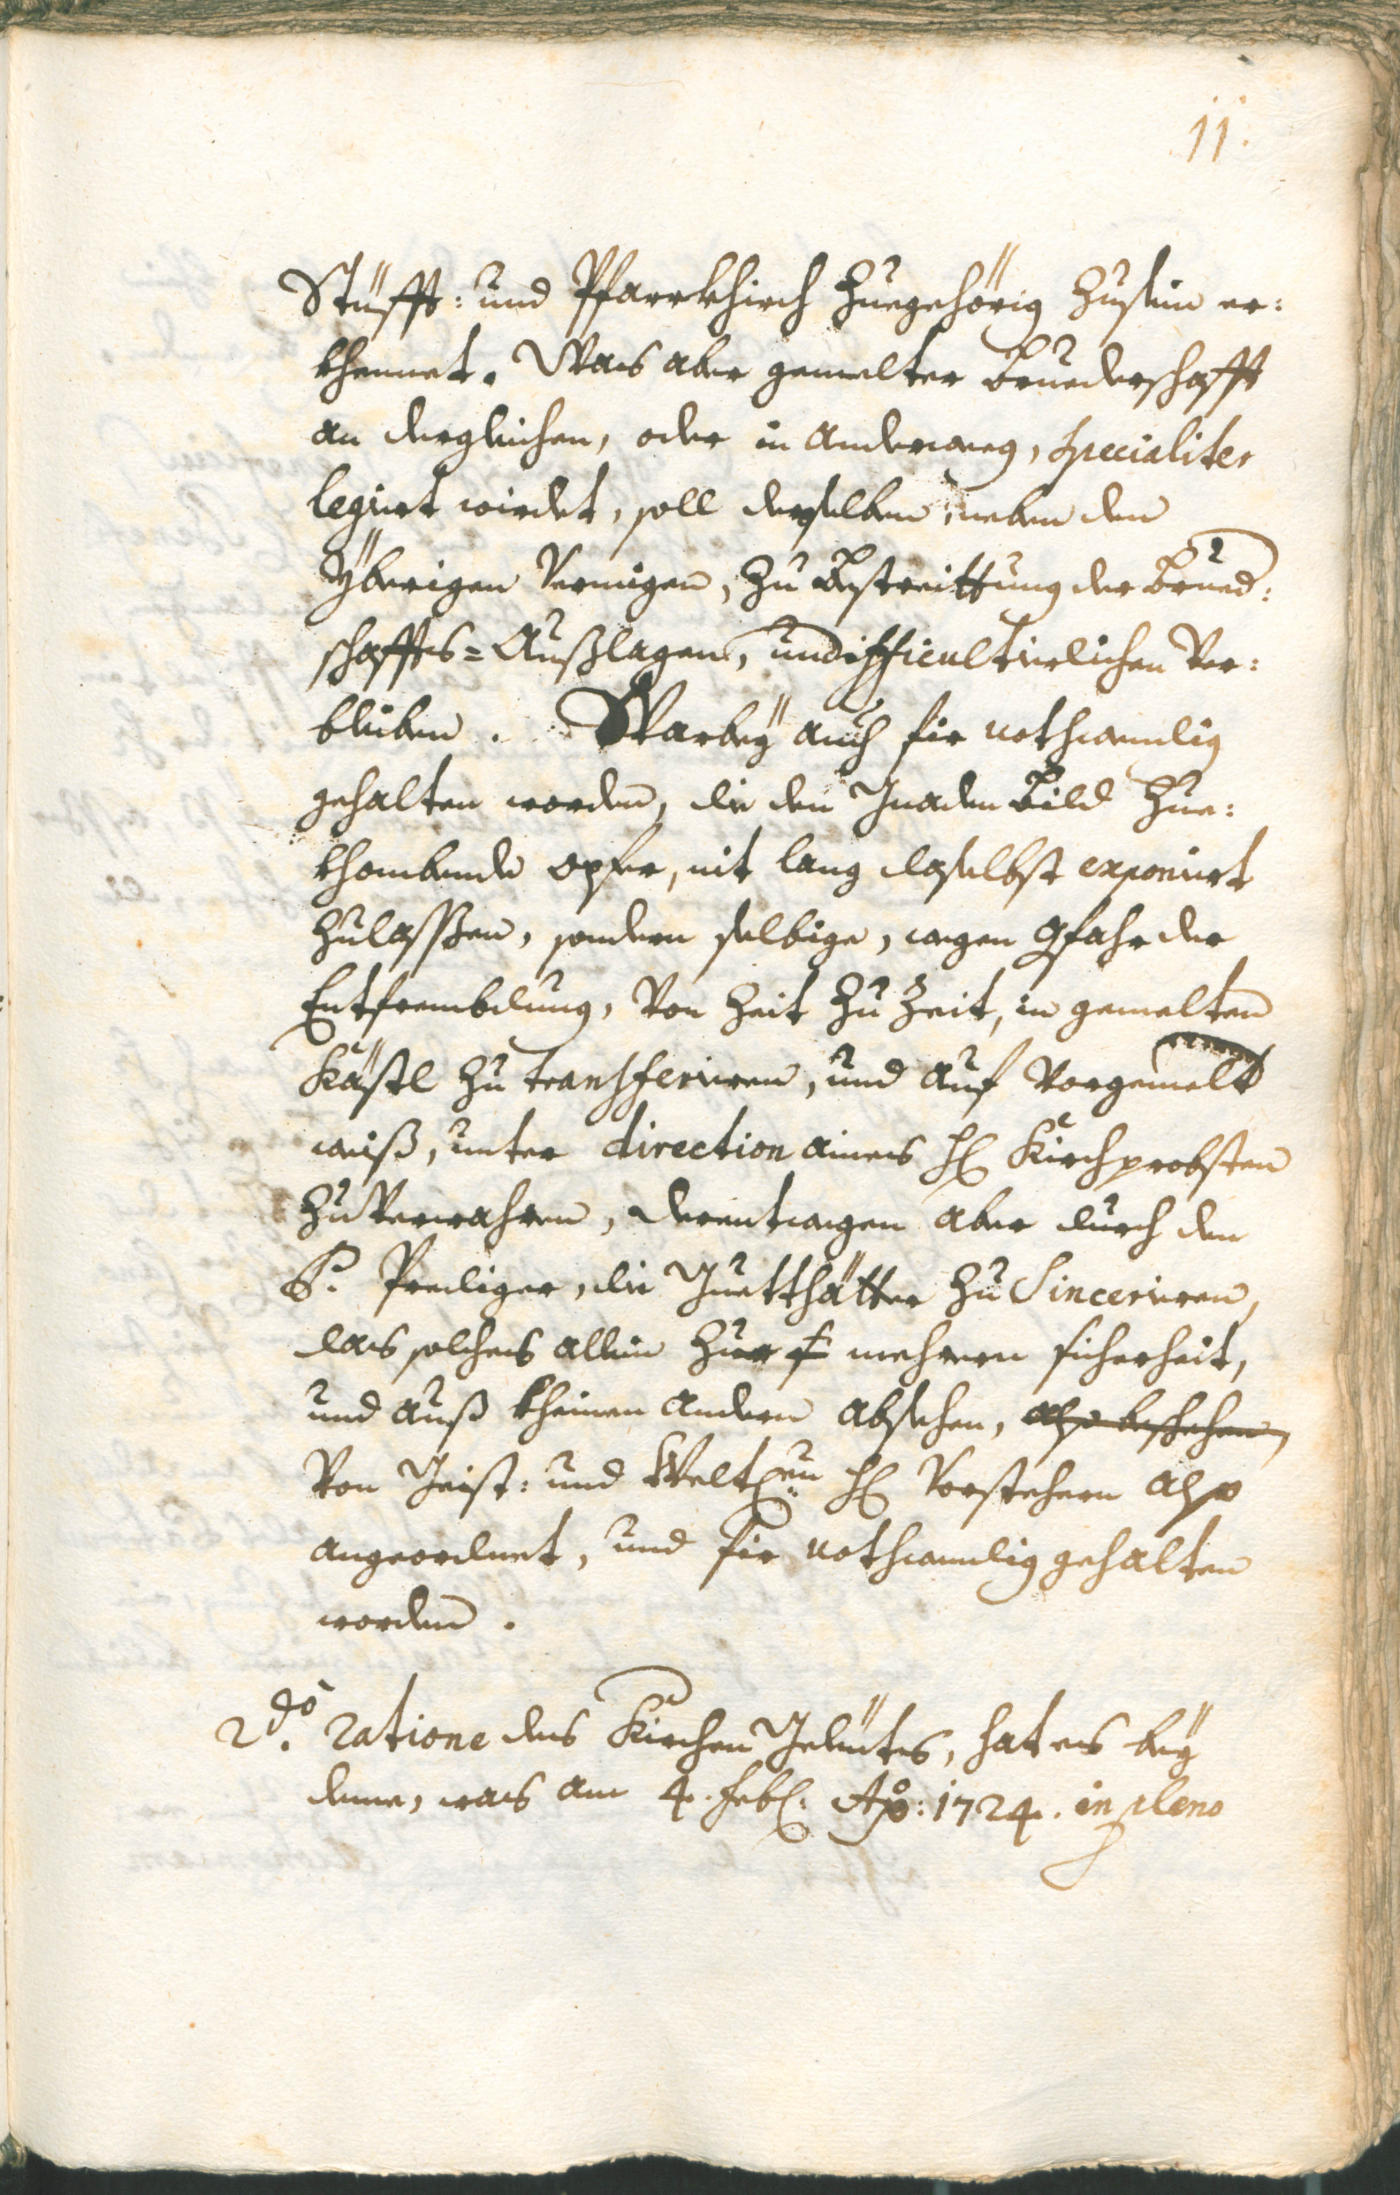 11.
Stüfft: und Pfarrkhirch zuegehörig zusein er:
khennet. Was aber gemelter Bruederschafft
an dergleichen, oder in anderweg, specialiter
legiert wirdet, soll derselben, neben den
yberigen Vermögen, zu Bestreittung der Brued:
schaffts=Außlagen, undifficultierlichen Ver:
bleiben. Warbey auch für nothwendig
gehalten worden, die den Gnaden Bild zue:
khombende opfer, nit lang daselbst exponiert
zulassßen, sondern selbige, wegen Gfahr der
Entfrembdung, von Zeit zu Zeit, in gemelten
Kästl zu transferieren, und auf vorgemelt
weiß, unter direction aines H: Kirchprobsten
zu Verwahren, derentwegen aber durch den
P. Prediger, die Guetthätter zu Sincerieren,
das solches allein zur mehrern sicherheit,
und auß kheinen andern absehen, also beschehen,
von Geist: und Weltl:en H: Vorstehern also
angeordnet, und für nothwendig gehalten
worden.
2do. ratione des Kirchen Geleüts, hat es bey
deme, was am 4. Feb: Ao: 1724. in pleno